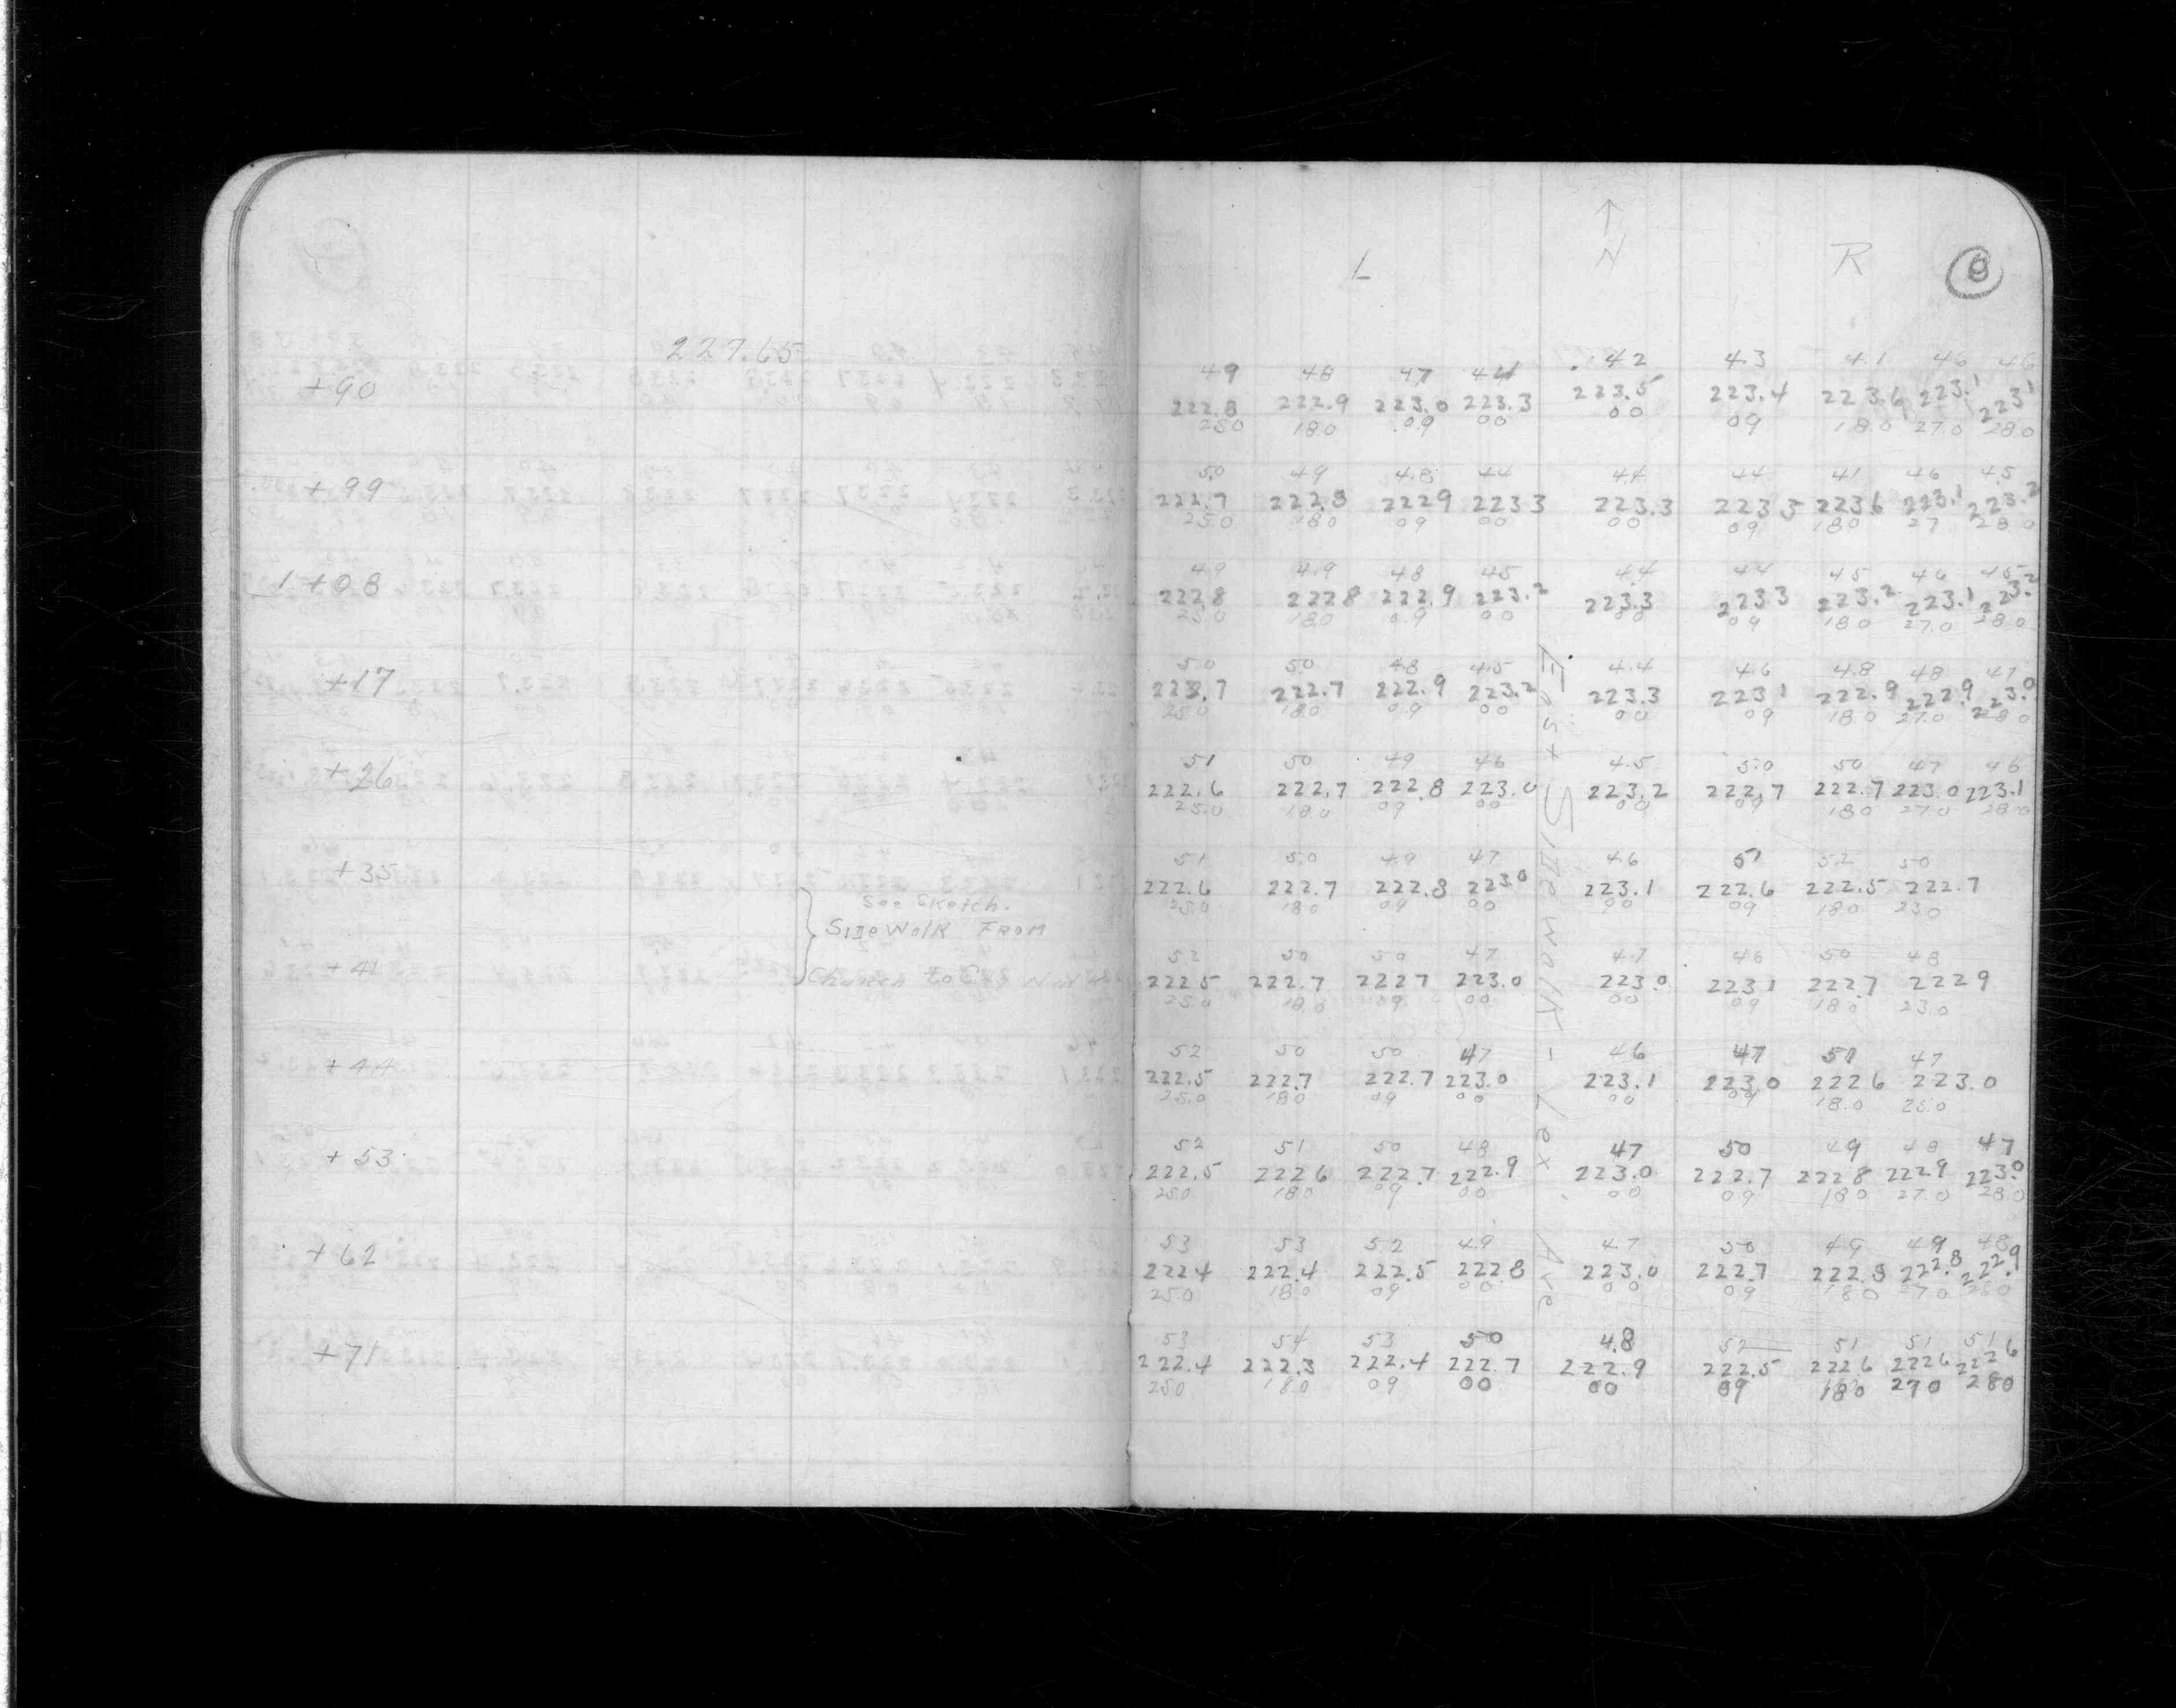 ↑
N
L R 8
227.65
49 48 47 44 42 4.3 4.1 46 46
+90 222.8 222.9 223.0 223.3 223.5 223.4 223.6 223.1 223.1
25.0 18.0 09 00 00 09 18.0 27.0 28.0
5.0 49 4.8 44 44 44 41 46 4.5
+99 222.7 222.8 2229 2233 223.3 2233 2236 223.1 223.2
25.0 18.0 09 00 00 09 180 27 28.0
4.9 4.9 48 45 4.4 44 45 46 45
1+08 222.8 2228 222.9 223.2 223.3 2233 223.2 223.1 223.2
25.0 18.0 0.9 00 00 09 180 27.0 28.0
50 50 48 4.5 4.4 46 4.8 48 47
+17 222.7 222.7 222.9 223.2 223.3 2231 222.9 222.9 223.0
25.0 18.0 09 00 00 09 18.0 27.0 28.0
51 50 49 46 4.5 5.0 50 47 46
+26 222.6 222.7 222.8 223.0 223.2 222.7 222.7 223.0 223.1
25.0 18.0 09 00 00 09 180 27.0 28.0
51 5.0 49 47 46 51 52 50
+35 222.6 222.7 222.8 223.0 223.1 222.6 222.5 222.7
25.0 18.0 09 00 00 09 18.0 23.0
See Sketch.
SIDeWalK FROM
Church to
52 50 50 47 4.7 46 50 48
+41 222.5 222.7 2227 223.0 223.0 2231 222.7 2229
25.0 18.0 09 00 00 09 18.0 23.0
52 50 50 47 46 47 51 47
+44 222.5 222.7 222.7 223.0 223.1 223.0 2226 223.0
25.0 180 09 00 00 09 18.0 23.0
52 51 50 48 47 50 49 48 47
+53 222.5 2226 222.7 222.9 223.0 222.7 2228 2229 223.0
25.0 18.0 09 00 00 09 180 27.0 280
53 53 52 4.9 4.7 50 49 49 48
+62 222.4 222.4 222.5 222.8 223.0 222.7 222.8 222.8 222.9
25.0 18.0 09 00 00 09 180 270 280
53 54 53 50 4.8 52 51 51 51
+71 222.4 222.3 222.4 222.7 222.9 222.5 222.6 2226 2226
250 18.0 09 00 00 09 180 270 280
East SIDeWalK - Lex. Ave